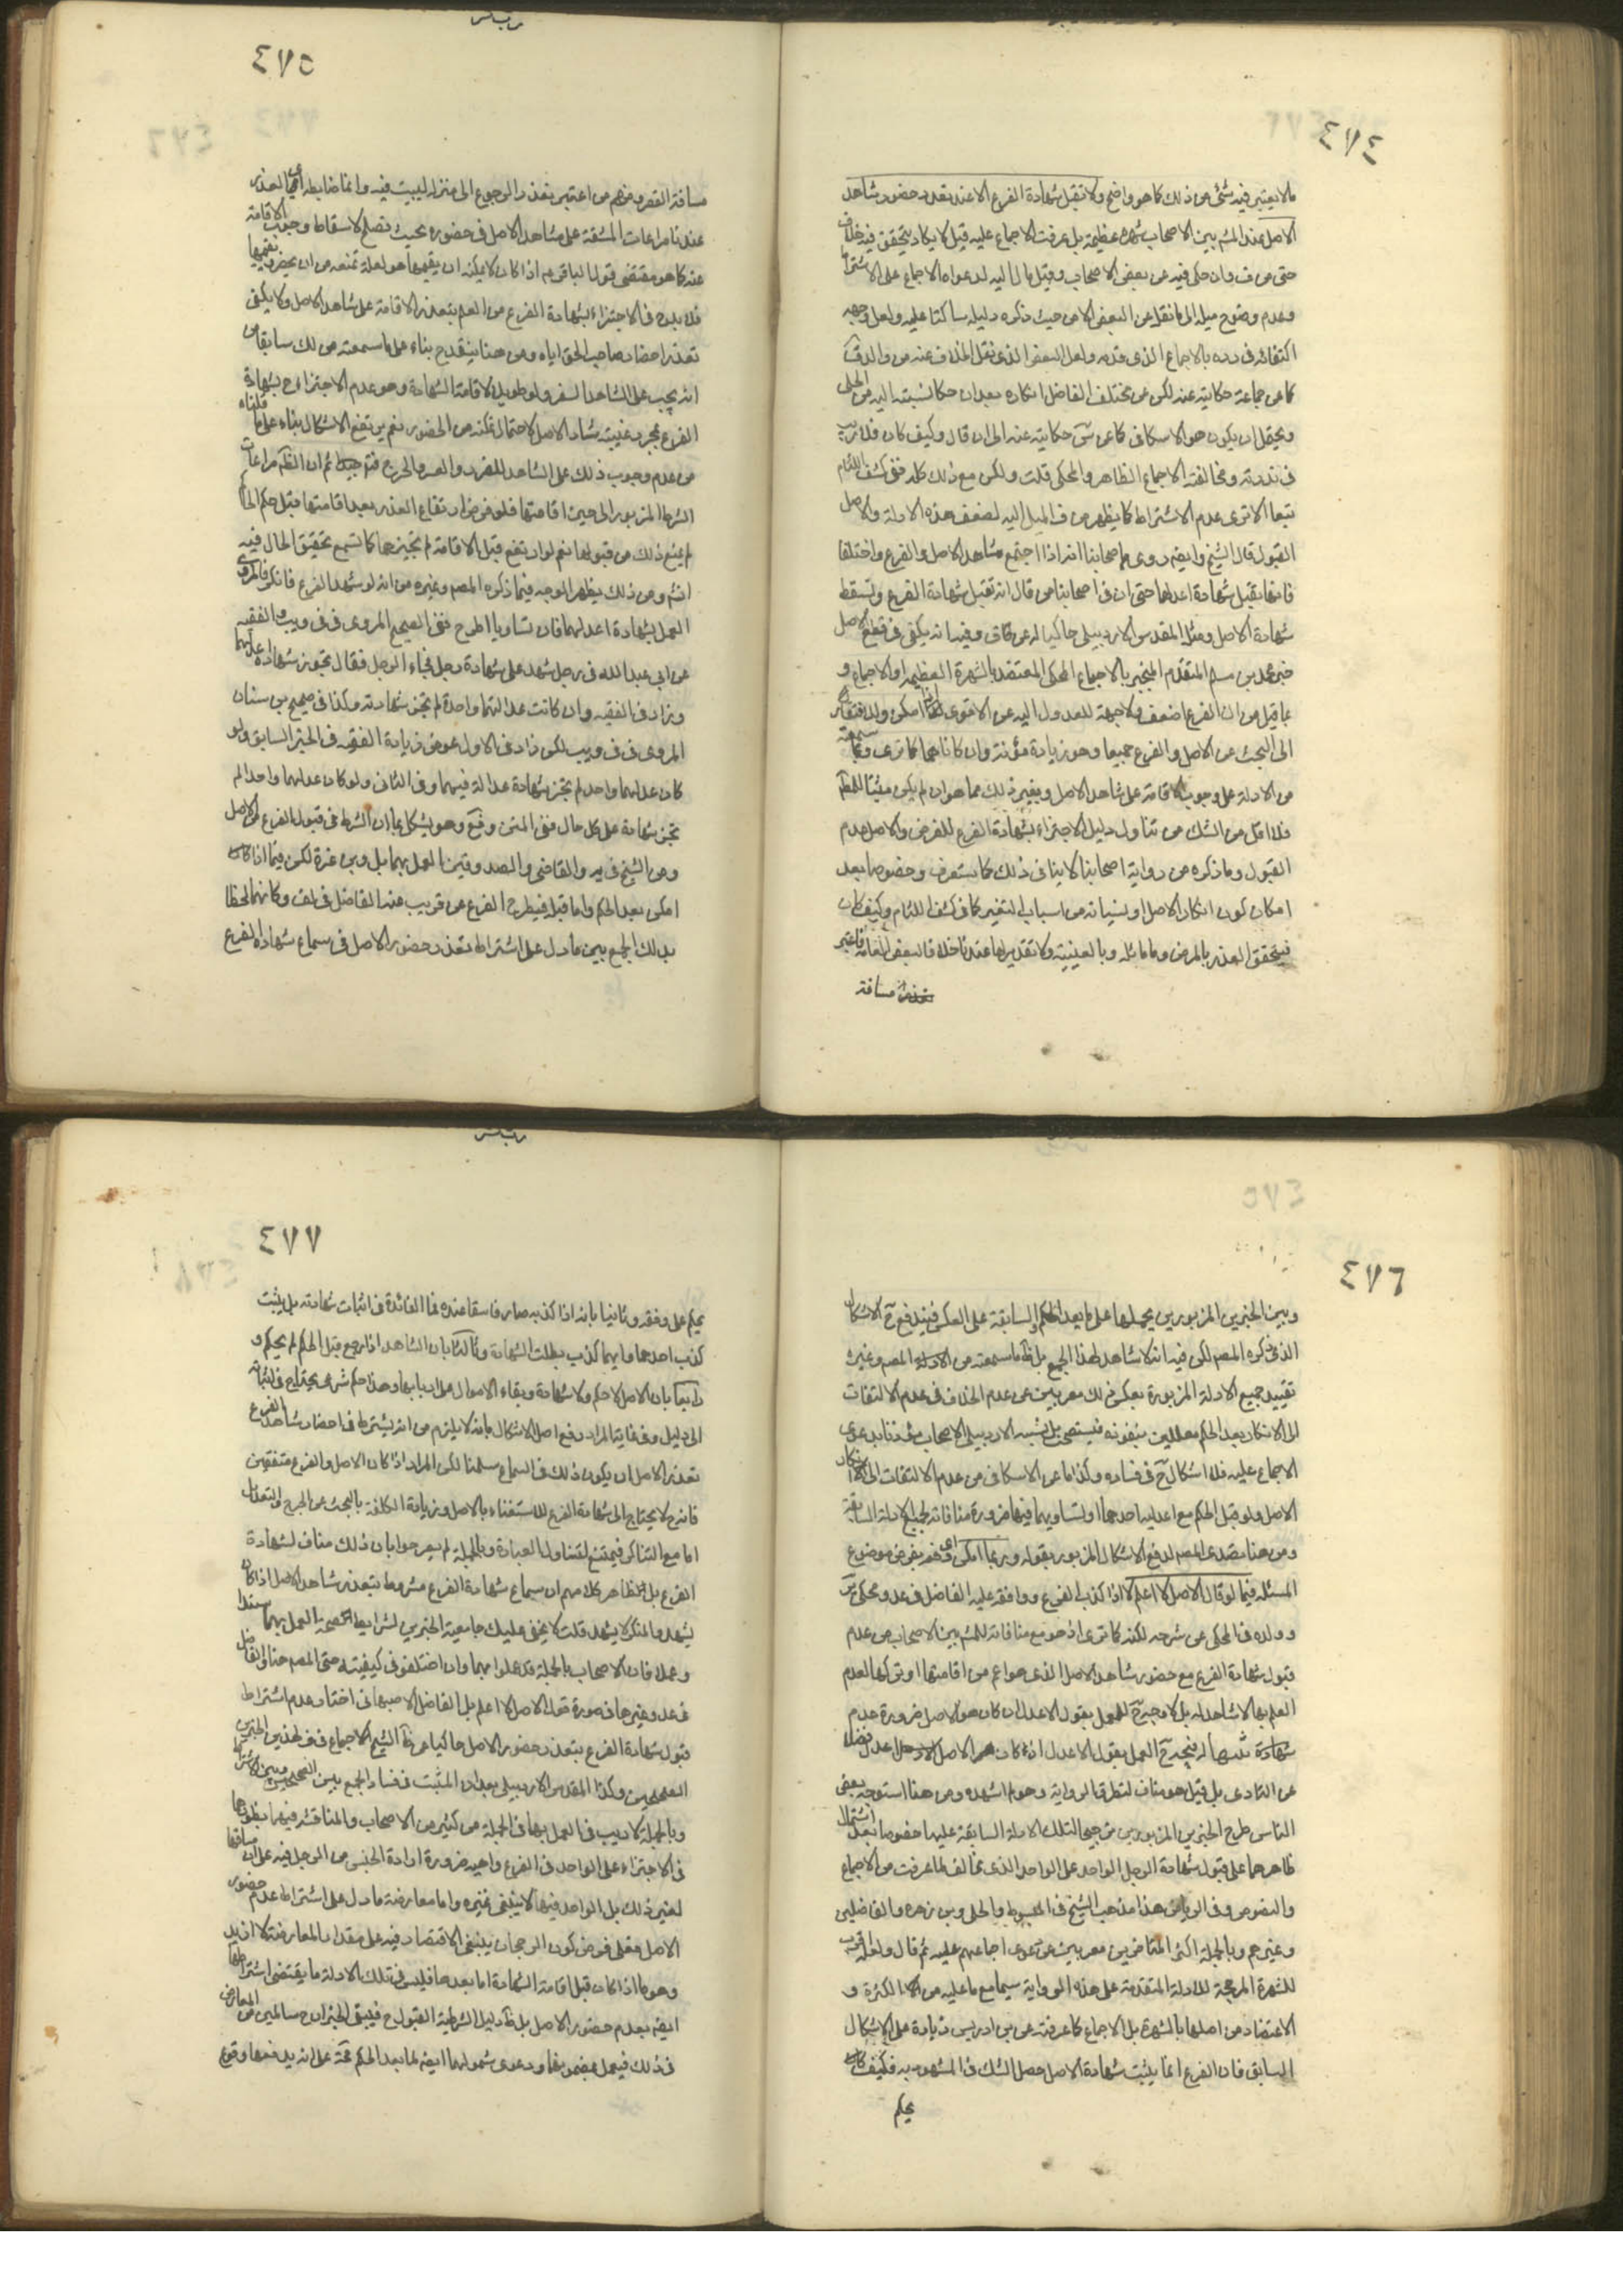 ٤٧٤
ما لا يعتبر فيه شئ من ذلك كما هو واضح ولا تقبل شهادة الفرع الا عند تعذر حضور شاهد
الاصل عند المش بين الاصحاب شهرة عظيمة بل عرفت الاجماع عليه قيل لا يكاد يتحقق فيه خلاف
حتى من ف وان حكى فيه عن بعض الاصحاب وقيل مال اليه لدعواه الاجماع على الاشتراط
وعدم وضوح ميله الى ما نقل عن البعض الا من حيث ذكره دليله ساكتا عليه ولعل وجهه
اكتفائه في رده بالاجماع الذي قدمه ولعل البعض الذي نقل الخلاف عنه هو والد ق
كما عن جماعة حكايته عنه لكن عن مختلف الفاضل انكاره بعد ان حكا نسبته اليه من الحلى
ويحتمل ان يكون هو الاسكافي كما عن حكايته عنه الى ان قال وكيف كان فلا ريب
في ندرته ومخالفته الاجماع الظاهر والمحكى قلت ولكن مع ذلك كله ففي كشف اللثام
تبعا الاقوى عدم الاشتراط كما يظهر من ف الميل اليه لضعف هذه الادلة والاصل
القبول قال الشيخ وايضا روى اصحابنا انه اذا اجتمع شاهد الاصل والفرع واختلفا
فانه تقبل شهادة اعدلهما حتى ان في اصحابنا من قال انه تقبل شهادة الفرع وتسقط
شهادة الاصل ومثله المقدس الاردبيلي حاكيا له عن ق وفيه انه يكفي في قطع الاصل
خبر محمد بن مسلم المتقدم المنجبر بالاجماع المحكى المعتضد بالشهرة العظيمة او الاجماع و
بما قيل من ان الفرع اضعف ولا جهة للعدول اليه عن الاقوى اذا امكن ولافتقاره
الى البحث عن الاصل والفرع جميعا وهو زيادة مؤنة وان كانا كما ترى وبما سمعته
من الادلة على وجوب الاقامة على شاهد الاصل وبغير ذلك مما هو ان لم يكن مثبتا للحكم
فلا اقل من الشك من تناول دليل الاجتزاء بشهادة الفرع للفرض والاصل عدم
القبول وما ذكره من رواية اصحابنا لا ينافي ذلك كما ستعرف وخصوصا بعد
امكان كون انكار الاصل او نسيانه من اسباب التعذر كما في كشف اللثام وكيف كان
فيتحقق العذر بالمرض وما ماثله وبالغيبة ولا تقدير لها عندنا خلافا لبعض العامة فاعتبر
مسافة
٤٧٥
مسافة القصر ومنهم من اعتبر تعذر الرجوع الى منزله ليبيت فيه وانما ضابطه اى العذر
عندنا مراعات المشقة على شاهد الاصل في حضوره بحيث تصلح لاسقاط وجوب الاقامة
عنه كما هو مقتضى قول الباقر ع اذا كان لا يمكنه ان يقيمها هو لعلة تمنعه من ان يحضر ويقيمها
فلا بد في الاجتزاء بشهادة الفرع من العلم بتعذر الاقامة على شاهد الاصل ولا يكفي
تعذر احضار صاحب الحق اياه ومن هنا ينقدح بناء على ما سمعته من لك سابقا من
انه يجب على الشاهد السفر ولو طويلا لاقامة الشهادة هو عدم الاجتزاء ح بشهادة
الفرع بمجرد غيبة شاهد الاصل لاحتمال تمكنه من الحضور نعم يرتفع الاشكال بناء على ما قلناه
من عدم وجوب ذلك على الشاهد للضرر والعسر والحرج فتم جيدا ثم ان الظ مراعات
الشرط المزبور الى حين اقامتها فلو فرض ارتفاع العذر بعد اقامتها قبل حكم الحاكم
لم يمنع ذلك من قبولها نعم لو ارتفع قبل الاقامة لم تجزها كما تسمع تحقيق الحال فيه
انش ومن ذلك يظهر الوجه فيما ذكره المصم وغيره من انه لو شهد الفرع فانكر فالمروى
العمل بشهادة اعدلهما فان تساويا اطرح ففي الصحيح المروى في في ويب والفقيه
عن ابي عبد الله في رجل شهد على شهادة رجل فجاء الرجل فقال تجوز شهادة اعدلهما
وزاد في الفقيه وان كانت عدالتهما واحدة لم تجز شهادته وكذا في صحيح بن سنان
المروى في في ويب لكن زاد في الاول عوض زيادة الفقيه في الخبر السابق ولو
كان عدلهما واحد لم تجز شهادة عدالة فيهما وفي الثاني ولو كان عدلهما واحدا لم
تجز شهادة على كل حال ففي المتن وفع وهو يشكل بما ان الشرط في قبول الفرع عدم الاصل
وعن الشيخ في يه والقاضي والصدوقين العمل بهما بل وبن حمزة لكن فيما اذا كان
امكن بعد الحكم واما قبله فيطرح الفرع عن قريب عند الفاضل في لف وكانهم لحظوا
بذلك الجمع بين ما دل على اشتراط تعذر حضور الاصل في سماع شهادة الفرع
٤٧٦
وبين الخبرين المزبورين بحملها على ما بعد الحكم والسابقة على العكس فيندفع ح الاشكال
الذي ذكره المصم لكن فيه انه لا شاهد لهذا الجمع بل ظ ما سمعته من الادلة المصم وغيره
تقييد جميع الادلة المزبورة بعكس ذلك معربين عن عدم الخلاف في عدم الالتفات
الى الانكار بعد الحكم معللين بنفوذه فيستصحب بل نسبه الاردبيلي الى الاصحاب مؤذنا بدعوى
الاجماع عليه فلا اشكال ح في فساده وكذا ما عن الاسكافي من عدم الالتفات الى انكار
الاصل ولو قبل الحكم مع اعدلية احدهما او تساويهما فيها ضرورة منافاته لجميع الادلة السابقة
ومن هنا تصدى المصم لدفع الاشكال المزبور بقوله وربما امكن اى دفعه بفرض موضوع
المسئلة فيما لو قال الاصل لا اعلم لا اذا كذب الفرع ووافقه عليه الفاضل في عد ومحكى ير
وولده في المحكى عن شرحه لكنه كما ترى اذ هو مع منافاته للمش بين الاصحاب من عدم
قبول شهادة الفرع مع حضور شاهد الاصل الذي هو اعم من اقامتها او تركها لعدم
العلم بها لا شاهد له بل لا وجه ح للعمل بقول الاعدل ان كان هو الاصل ضرورة عدم
شهادة له فيجبر ح العمل بقول الاعدل اذ كان هو الاصل اعدل فضلا
عن التساوى بل قيل هو مناف لنطق الرواية وهو لم اشهده ومن هنا استوجه بعض
الناس طرح الخبرين المزبورين ترجيحا لتلك الادلة السابقة عليهما خصوصا بعد اشتمال
ظاهرهما على قبول شهادة الرجل الواحد على الواحد الذي مخالف لما عرفت من الاجماع
والنصوص وفي الرياض هذا مذهب الشيخ في المبسوط والحلى وبن زهره والفاضلين
وغيرهم وبالجملة اكثر المتاخرين معربين عن دعوى اجماعهم عليه ثم قال ولعله اقرب
للشهرة المرجحة للادلة المتقدمة على هذه الرواية سيما مع ما عليه من الكثرة و
الاعتضاد من اصلها بالشهرة بل الاجماع كما عرفته عن بن ادريس زيادة على الاشكال
السابق فان الفرع انما يثبت شهادة الاصل حصل الشك في المشهود به فكيف كان
يحكم
٤٧٧
يحكم على وفقه وثانيا بانه اذا كذبه صار فاسقا عنده فما الفائدة في اثبات شهادته بل يثبت
كذب احدهما وايهما كذب بطلت الشهادة وثالثا بان الشاهد اذا رجع قبل الحكم لم يحكم و
رابعا بان الاصل لا حكم ولا شهادة وبقاء الاموال على اربابها وهذا حكم شرعى يحتاج في اثباته
الى دليل وفي غاية المراد دفع اصل الاشكال بانه لا يلزم من انه يشترط في احضار شاهد الفرع
تعذر الاصل ان يكون ذلك في السماع سلمنا لكن المراد اذا كان الاصل والفرع متفقين
فانه ح لا يحتاج الى شهادة الفرع للاستغناء بالاصل وزيادة الكلفة بالبحث عن الجرح والتعديل
اما مع التناكر فيمتنع لتناول العبادة وبالجملة لم يصرحوا بان ذلك مناف لشهادة
الفرع بل ظاهر كلامهم ان سماع شهادة الفرع مشروط بتعذر شاهد الاصل اذا كان
يشهد والمنكر لا يشهد قلت لا يخفى عليك جامعية الخبرين لشرايط الحجية العمل بهما سندا
وعملا فان الاصحاب بالجملة قد عملوا بهما وان اختلفوا في كيفيته حتى المصم هنا والفاضل
في عد وغيرها في صورة قول الاصل لا اعلم بل الفاضل الاصبهاني اختار عدم اشتراط
قبول شهادة الفرع بتعذر حضور الاصل حاكيا عن ظ الشيخ الاجماع في ف لهذين الخبرين
الصحيحين وكذا المقدس الاردبيلي بعد ان المثبت في فساد الجمع بين الصحيحين وبين الاشتراط
وبالجملة لا ريب في العمل بهما في الجملة من كثير من الاصحاب والمناقشة فيهما بظهورهما
في الاجتزاء على الواحد في الفرع واهية ضرورة ارادة الجنس من الرجل فيه على ان
لغير ذلك بل الواحد فيها لا ينبغي غيره واما معارضة ما دل على اشتراط عدم حضور
الاصل فعلى فرض كون الرجحان ينبغي الاقتصاد فيه على مقدار المعارضة لا ازيد
وهو ما اذا كان قبل اقامة الشهادة اما بعدها فليس في تلك الادلة ما يقتضى اشتراطها
ايضا بعدم حضور الاصل بل ظ دليل الشرطية القبول ح فيبقى الخبران ح سالمين عن المعارض
في ذلك فيعمل بمضمونهما ودعوى شمولهما ايضا لما بعد الحكم على انه يدفعها وقوع